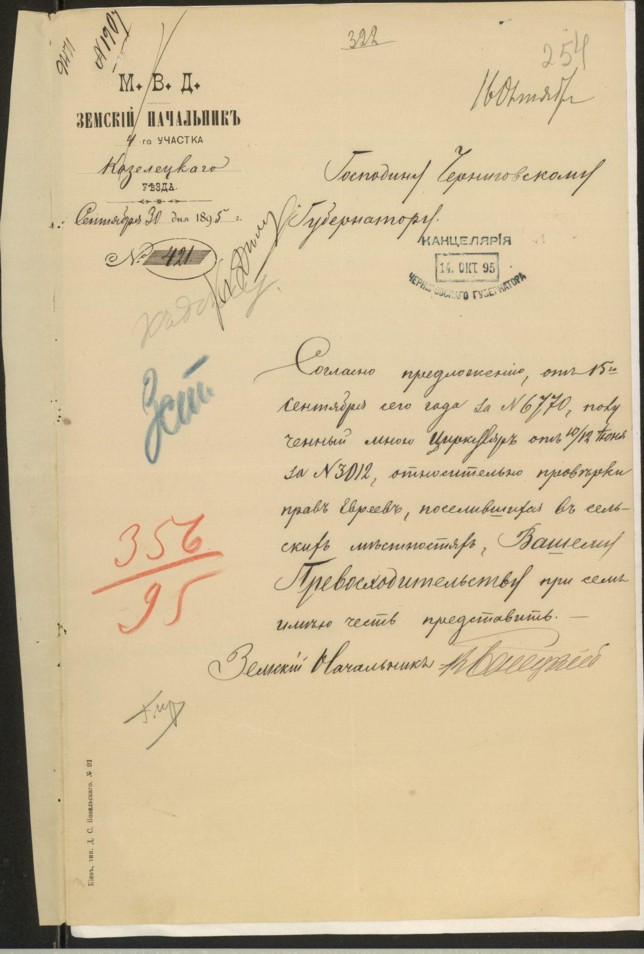 322
254
N 1907
16 Октября
М. В. Д.
ЗЕМСКІЙ НАЧАЛЬНИКЪ
4 го УЧАСТКА
Козелецкаго
УѢЗДА.
Сентября 30 дня 1895 г.
№ 421
Господину Черниговскому
Губернатору.
КАНЦЕЛЯРІЯ
14. ОКТ. 95
ЧЕРНИГОВСКАГО ГУБЕРНАТОРА
Согласно предложенію, отъ 15го
Сентября сего года за N 6770, полу
ченный мною Циркуляръ отъ 10/12 Іюня
за N 3012, относительно провѣрки
правъ Евреевъ, поселившихся въ сель-
скихъ мѣстностяхъ, Вашему
Превосходительству при семъ
имѣю честь представить. —
Земскій Начальникъ
356
95
Кіевъ, тип. Д. С. Повальскаго. № 91